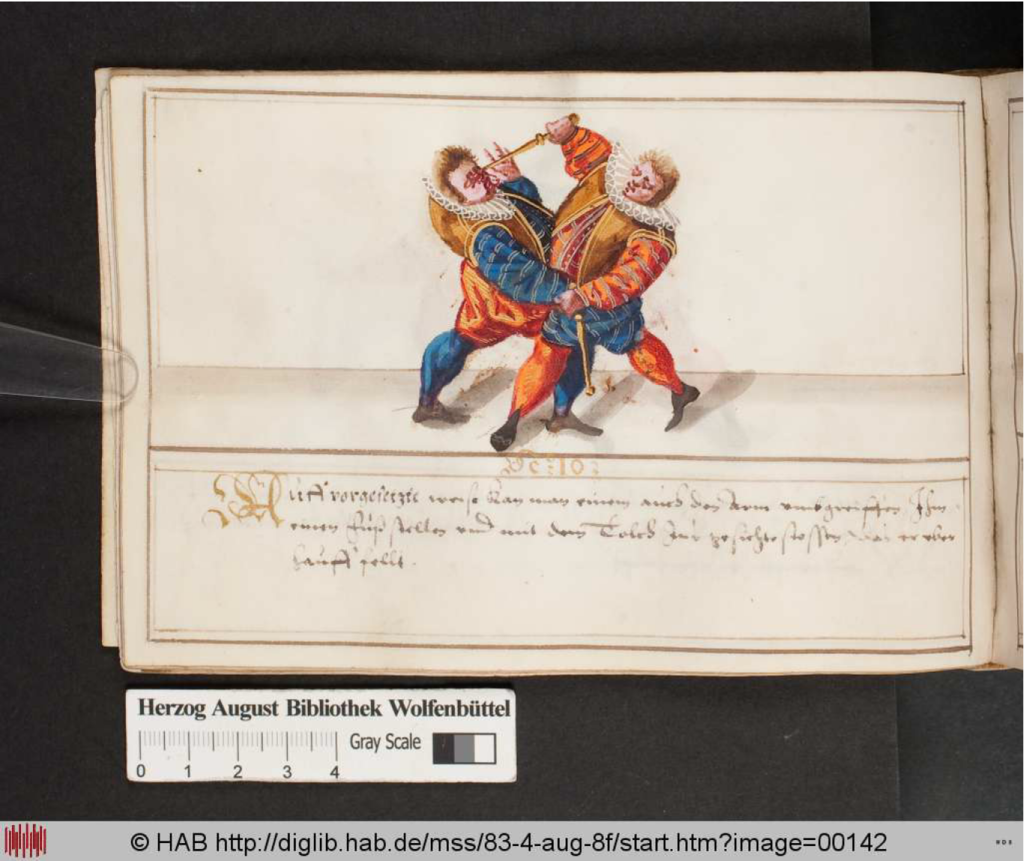 Auff vorgesetzte weise kan man einem auch den Arm umbgreiffen Ihm
einen fuß stellen und mit dem Tolch zur gesichte stossen das er uber
hauff fellt.
Herzog August Bibliothek Wolfenbüttel
Gray Scale
0 1 2 3 4
© HAB http://diglib.hab.de/mss/83-4-aug-8f/start.htm?image=00142